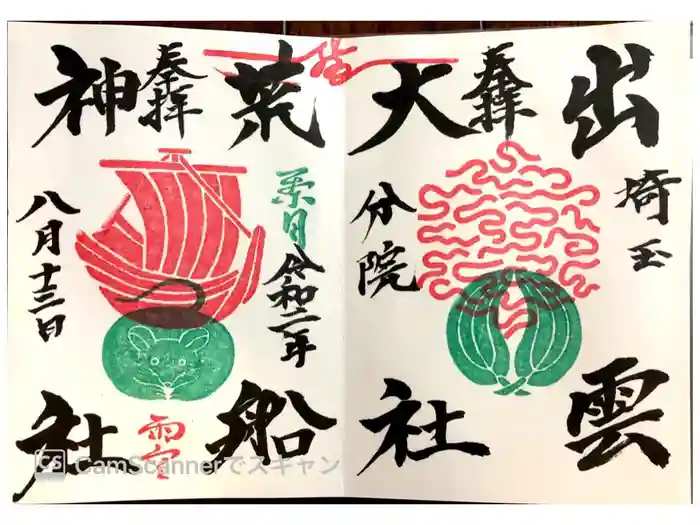 出雲
埼玉
奉拝
大社
分院
荒船
葉月
令和二年
奉拝
神社
八月十三日
CS CamScannerでスキャン